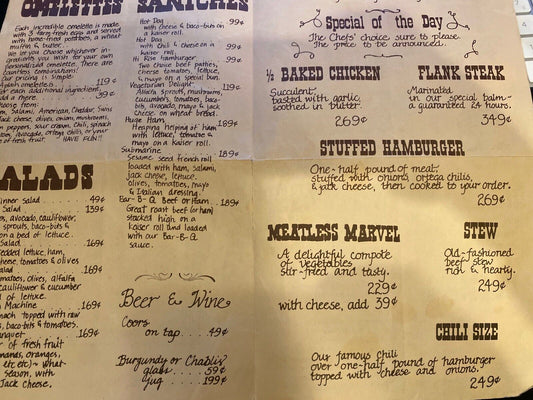 OMELETTES
Each incredible omelette is made
with 3 farm fresh eggs and served
with home-fried potatoes, a wheat
muffin & butter.
We let you choose whichever in-
gredients you wish for your own
personalized omelette. There are
countless combinations!
Our pricing is simple:
omelettes 119¢
each additional ingredient,
add a mere 39¢
Choose from:
Ham, Salami, American, Cheddar, Swiss
Jack cheese, olives, onion, mushrooms,
peppers, sour cream, chili, spinach
tomatoes, avocado, ortega chilis, or your
of fresh fruit. HAVE FUN!!
SALADS
Dinner salad . . . . 49¢
Salad . . . . 139¢
avocado, cauliflower,
sprouts, baco-bits &
on a bed of lettuce.
Salad . . . . 169¢
shredded lettuce, ham,
cheese, tomatoes & olives
Salad . . . . 169¢
tomatoes, olives, alfalfa
cauliflower & cucumber
of lettuce.
Machine . . . . 169¢
spinach topped with raw
baco-bits & tomatoes.
Banquet . . . . 169¢
of fresh fruit
bananas, oranges,
etc, etc) - what-
season, with
Jack Cheese.
SANTCHES
Hot Dog 99¢
with cheese & baco-bits on
a kaiser roll.
Hot Dog 99¢
with chili & cheese on a
kaiser roll.
Hi Rise hamburger 99¢
Two choice beef patties,
cheese, tomatoes, lettuce,
& mayo on a special bun.
Vegetarian Delight 119¢
Alfalfa sprouts, mushrooms,
cucumbers, tomatoes, baco-
bits, avocado, mayo & jack
cheese on wheat bread.
Huge Ham 189¢
Heaping helping of ham
with lettuce, tomato &
mayo on a Kaiser roll.
Submarine 189¢
Sesame seed french roll
loaded with ham, salami,
jack cheese, lettuce,
olives, tomatoes, mayo
& Italian dressing.
Bar-B-Q Beef or Ham . 189¢
Great roast beef (or ham)
stacked high on a
kaiser roll and loaded
with our Bar-B-Q
sauce.
Beer & Wine
Coors
on tap . . . . 49¢
Burgundy or Chablis
glass . . . . 59¢
jug . . . . 199¢
Special of the Day
The Chefs' choice sure to please.
The price to be announced.
½ BAKED CHICKEN
Succulent,
basted with garlic,
soothed in butter.
269¢
FLANK STEAK
Marinated
in our special balm-
a guaranteed 24 hours.
349¢
STUFFED HAMBURGER
One-half pound of meat
stuffed with onions, ortega chilis,
& jack cheese, then cooked to your order.
269¢
MEATLESS MARVEL
A delightful compote
of vegetables
stir-fried and tasty.
229¢
with cheese, add 39¢
STEW
Old-fashioned
beef stew
rich & hearty.
249¢
CHILI SIZE
Our famous chili
over one-half pound of hamburger
topped with cheese and onions.
249¢